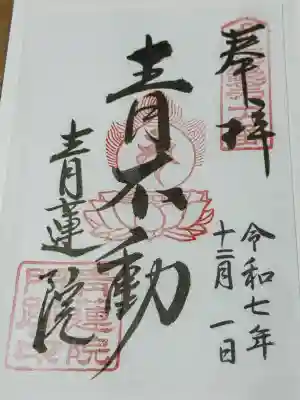 奉拝
令和七年
十二月一日
青不動
青蓮院
青蓮院
門跡